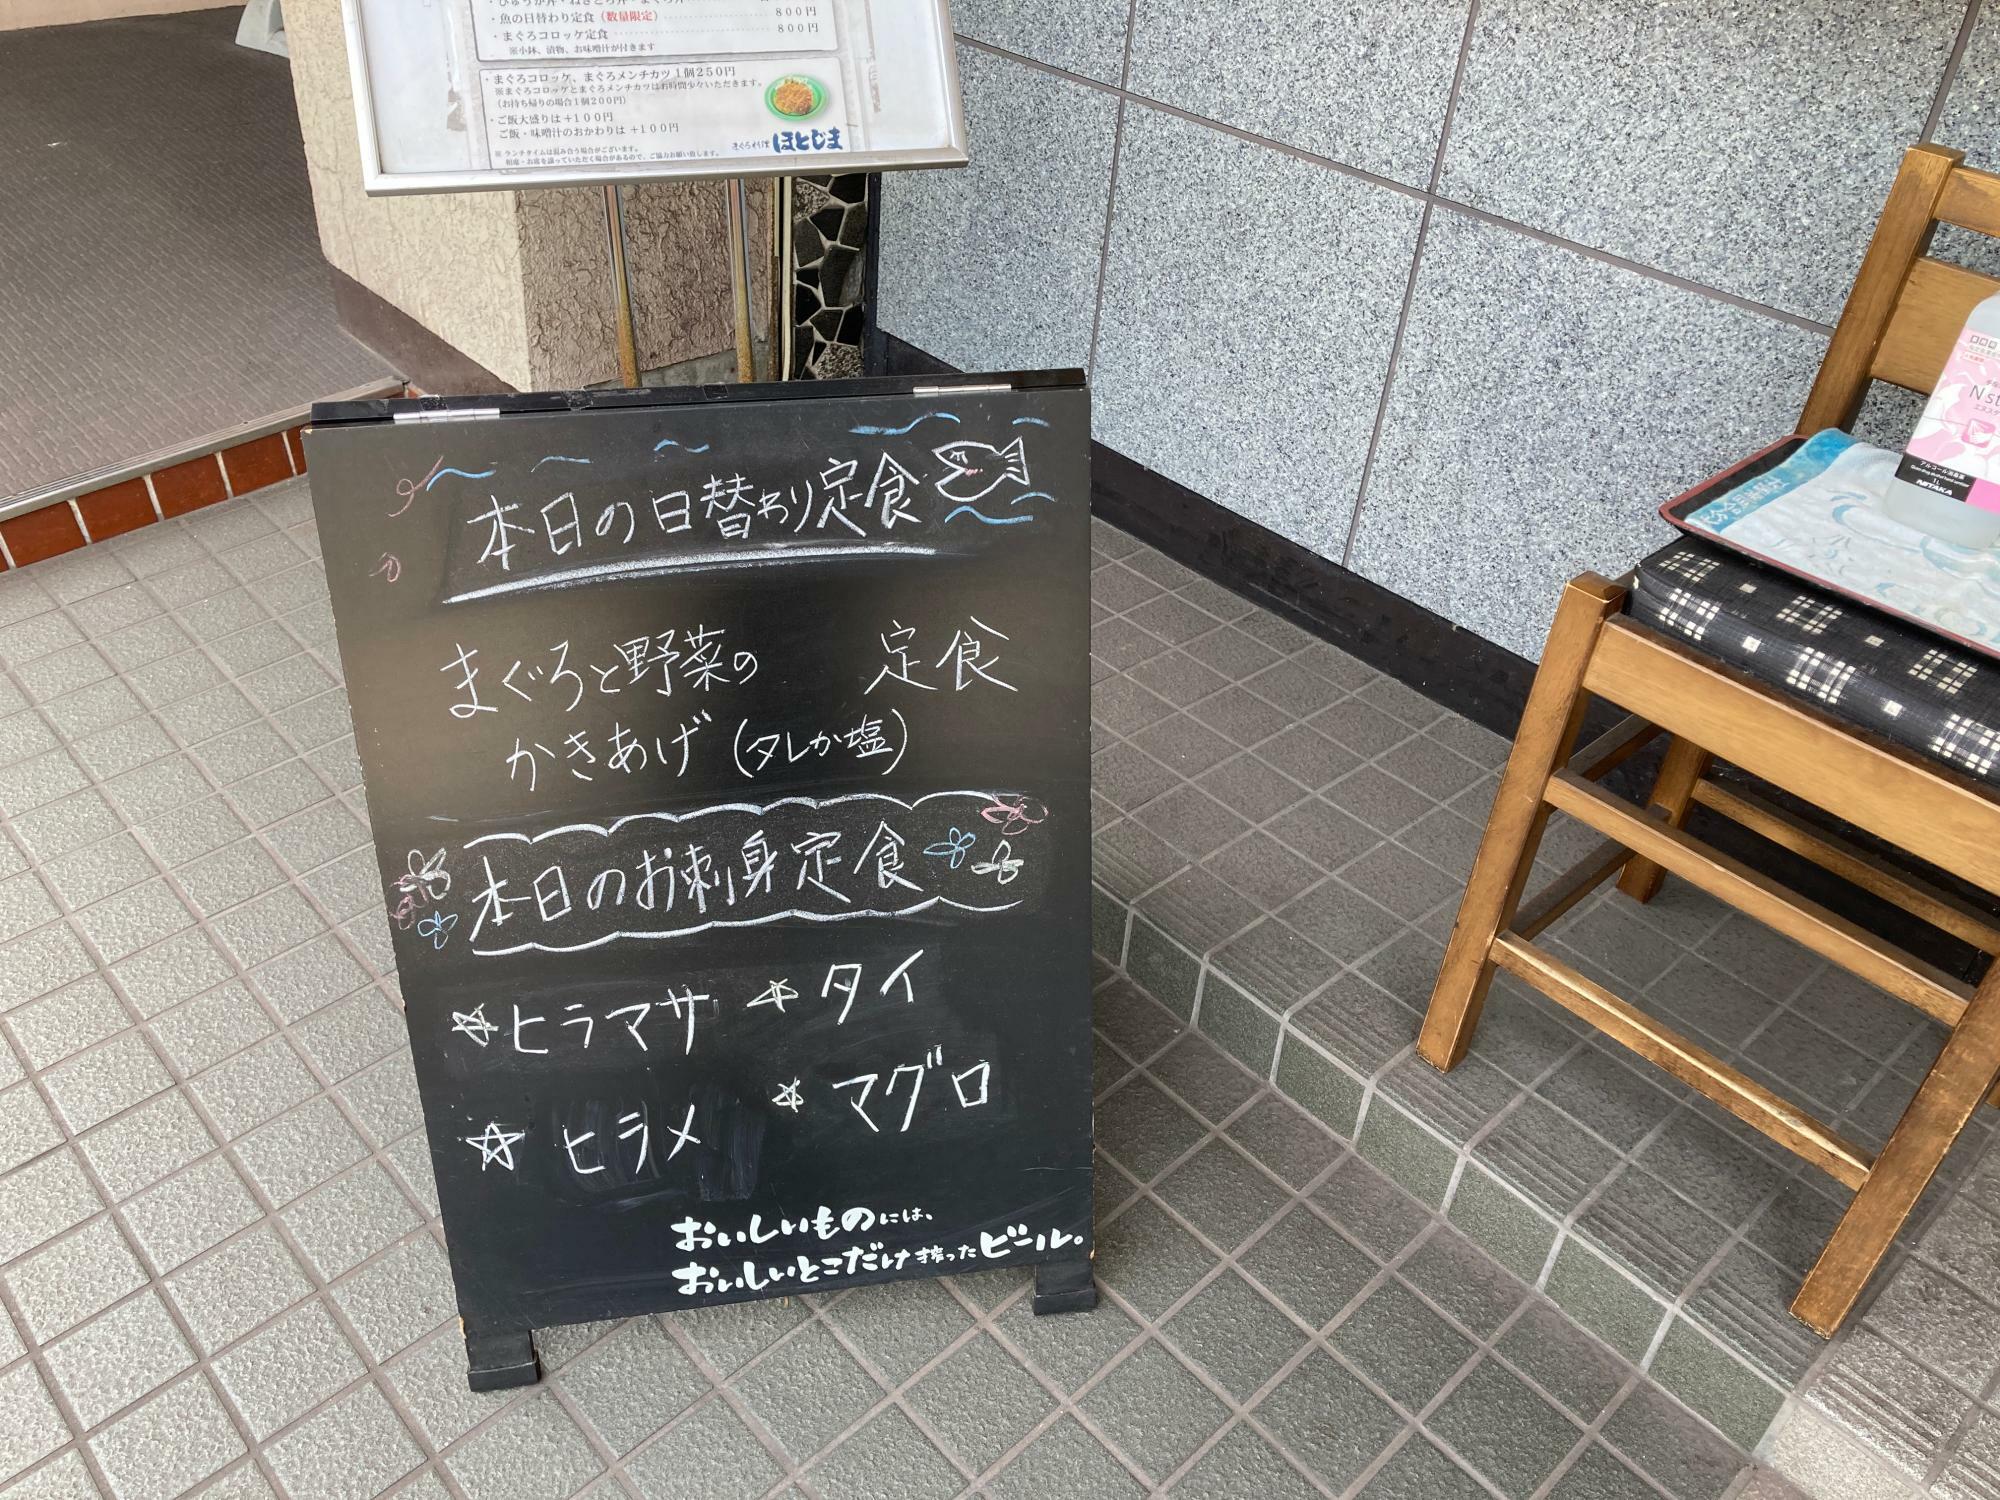 ・魚の日替わり定食（数量限定） 800円
・まぐろコロッケ定食 800円
※小鉢、漬物、お味噌汁が付きます
・まぐろコロッケ、まぐろメンチカツ1個250円
※まぐろコロッケとまぐろメンチカツはお時間少々いただきます。
（お持ち帰りの場合1個200円）
・ご飯大盛りは＋100円
ご飯・味噌汁のおかわりは＋100円
※ランチタイムは混み合う場合がございます。
相席・お席を譲っていただく場合があるので、ご協力お願い致します。
まぐろ料理 ほとじま
本日の日替わり定食
まぐろと野菜の 定食
かきあげ（タレか塩）
本日のお刺身定食
☆ヒラマサ ☆タイ
☆ヒラメ ☆マグロ
おいしいものには、
おいしいとこだけ搾ったビール。
アルコール消毒薬
1L
NIITAKA